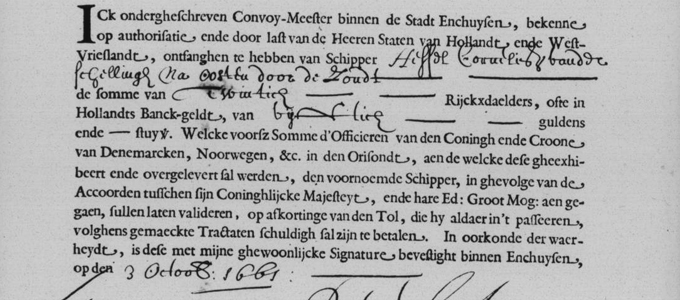 ICk ondergheschreven Convoy-Meester binnen de Stadt Enchuysen, bekenne
op authorisatie ende door last van de Heeren Staten van Hollandt, ende West-
Vrieslandt, ontfanghen te hebben van Schipper
Na oosten door de Zondt
de somme van Twintich — — Rijckxdaelders, ofte in
Hollandts Banck-geldt, van vijftich — — guldens
ende — stuyv. Welcke voorsz Somme d'Officieren van den Coningh ende Croone
van Denemarcken, Noorwegen, &c. in den Orisondt, aen de welcke dese gheexhi-
beert ende overgelevert sal werden, den voornoemde Schipper, in ghevolge van de
Accoorden tusschen sijn Coninghlijcke Majesteyt, ende hare Ed: Groot Mog: aen ge-
gaen, sullen laten valideren, op afkortinge van den Tol, die hy aldaer in't passeeren,
volghens gemaeckte Tractaten schuldigh sal zijn te betalen. In oorkonde der waer-
heydt, is dese met mijne ghewoonlijcke Signature bevestight binnen Enchuysen,
op den 3 Octob: 1661: